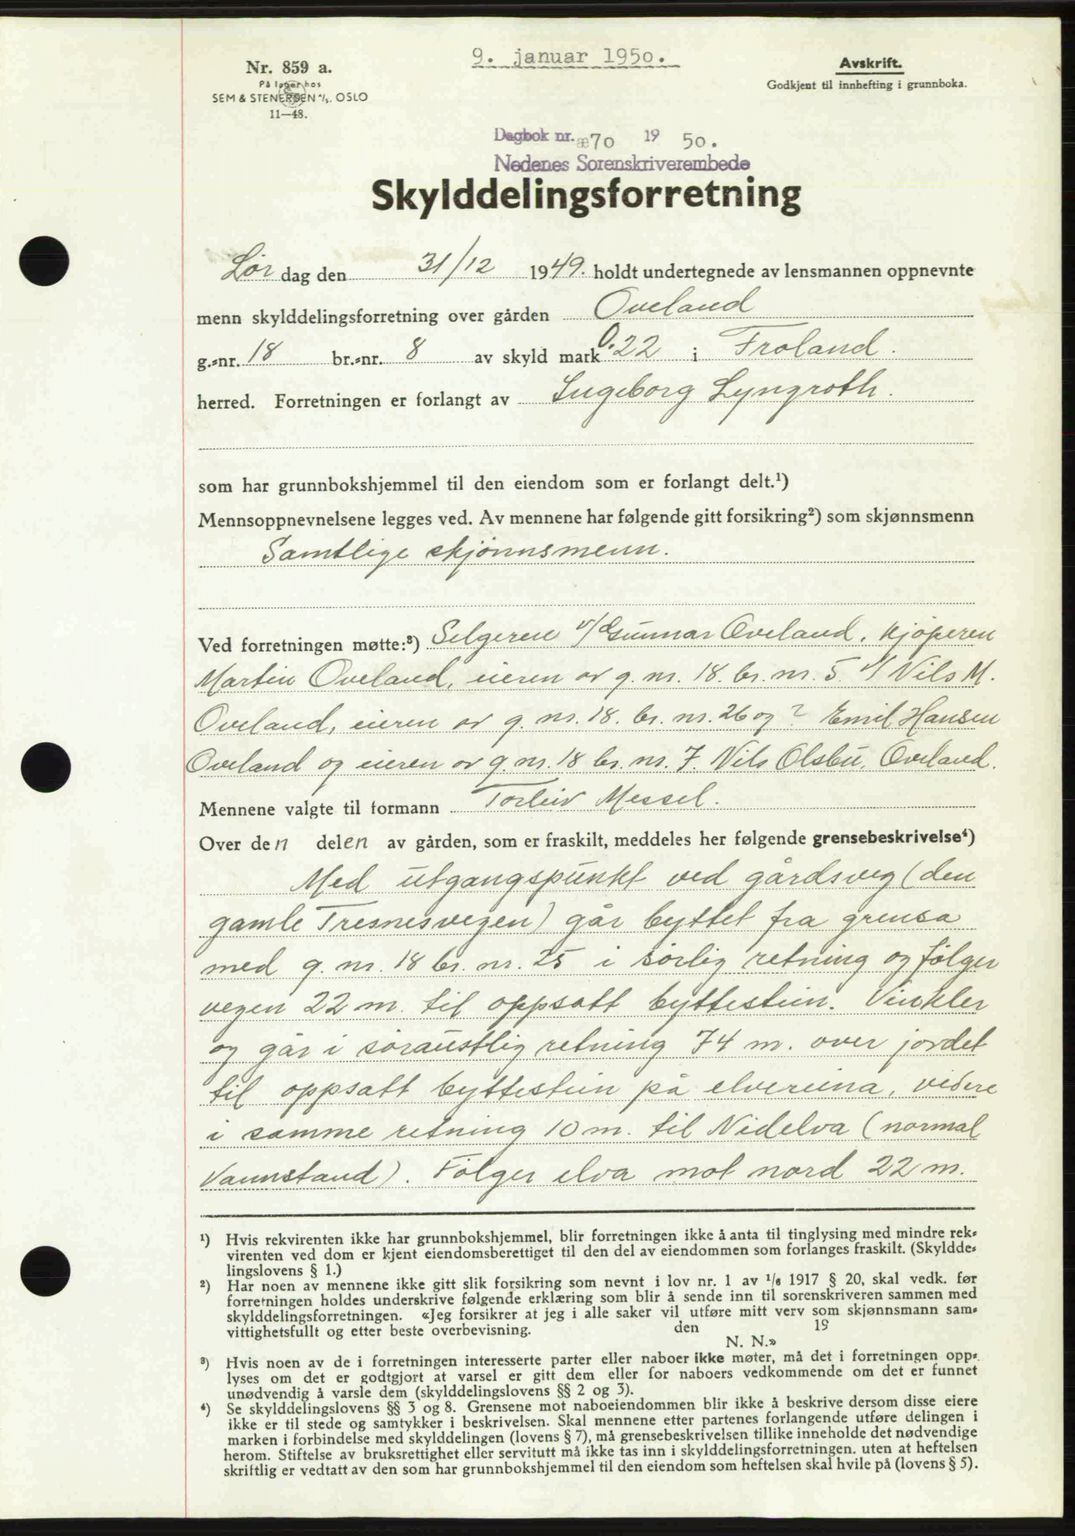 9. januar 1950.
Nr. 859 a.
På lager hos
SEM & STENERSEN A/S. OSLO
11—48.
Avskrift.
Godkjent til innhefting i grunnboka.
Dagbok nr. æ70 1950.
Nedenes Sorenskriverembede
Skylddelingsforretning
Lør dag den 31/12 1949. holdt undertegnede av lensmannen oppnevnte
menn skylddelingsforretning over gården Oveland
g.-nr. 18 br.-nr. 8 av skyld mark 0.22 i Froland.
herred. Forretningen er forlangt av Ingeborg Lyngroth.
som har grunnbokshjemmel til den eiendom som er forlangt delt.¹)
Mennsoppnevnelsene legges ved. Av mennene har følgende gitt forsikring²) som skjønnsmenn
Samtlige skjønnsmenn.
Ved forretningen møtte:³) Selgeren v/ Gunnar Oveland, kjøperen
Martin Oveland, eieren av g. nr. 18. br. nr. 5 v/ Nils M.
Oveland, eieren av g. nr. 18. br. nr. 26 og ? Emil Hansen
Oveland og eieren av g. nr. 18 br. nr. 7. Nils Olsbu, Oveland.
Mennene valgte til formann Torleiv Messel.
Over den delen av gården, som er fraskilt, meddeles her følgende grensebeskrivelse⁴)
Med utgangspunkt ved gårdsveg (den
gamle Tresnesvegen) går byttet fra grensa
med g. nr. 18 br. nr. 25 i sørlig retning og følger
vegen 22 m. til oppsatt byttestein. Vinkler
og går i søraustlig retning 74 m. over jordet
til oppsatt byttestein på elvereina, videre
i samme retning 10 m. til Nidelva (normal
Vannstand). Følger elva mot nord 22 m.
¹) Hvis rekvirenten ikke har grunnbokshjemmel, blir forretningen ikke å anta til tinglysing med mindre rek-
virenten ved dom er kjent eiendomsberettiget til den del av eiendommen som forlanges fraskilt. (Skyldde-
lingslovens § 1.)
²) Har noen av mennene ikke gitt slik forsikring som nevnt i lov nr. 1 av 1/6 1917 § 20, skal vedk. før
forretningen holdes underskrive følgende erklæring som blir å sende inn til sorenskriveren sammen med
skylddelingsforretningen. «Jeg forsikrer at jeg i alle saker vil utføre mitt verv som skjønnsmann sam-
vittighetsfullt og etter beste overbevisning. den 19
N. N.»
³) Hvis noen av de i forretningen interesserte parter eller naboer ikke møter, må det i forretningen opp-
lyses om det er godtgjort at varsel er gitt dem eller for naboers vedkommende om det er funnet
unødvendig å varsle dem (skylddelingslovens §§ 2 og 3).
⁴) Se skylddelingslovens §§ 3 og 8. Grensene mot naboeiendommen blir ikke å beskrive dersom disse eiere
ikke er til stede og samtykker i beskrivelsen. Skal mennene etter partenes forlangende utføre delingen i
marken i forbindelse med skylddelingen (lovens § 7), må grensebeskrivelsen tillike inneholde det nødvendige
herom. Stiftelse av bruksrettighet eller servitutt må ikke tas inn i skylddelingsforretningen. uten at heftelsen
skriftlig er vedtatt av den som har grunnbokshjemmel til den eiendom som heftelsen skal hvile på (lovens § 5).